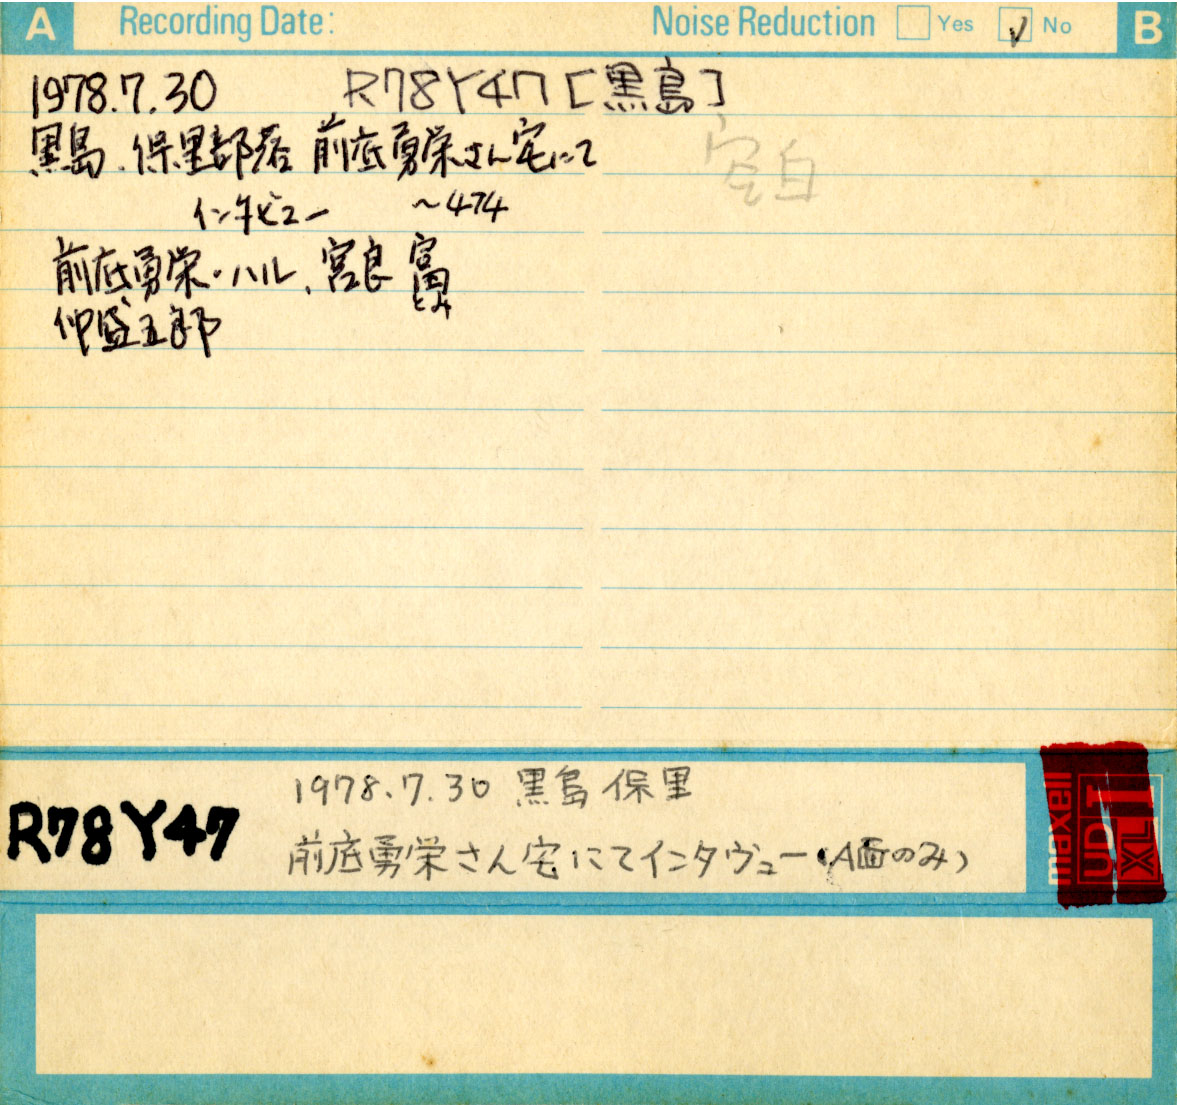 A Recording Date: Noise Reduction Yes No B
1978.7.30 R78Y47 [黒島]
黒島、保里部落 前底勇栄さん宅にて
空白
インタビュー ~474
前底勇栄・ハル、宮良 富
とみ
仲盛五郎
1978.7.30 黒島保里
R78Y47
前底勇栄さん宅にてインタヴュー(A面のみ)
maxell
UD
XL I